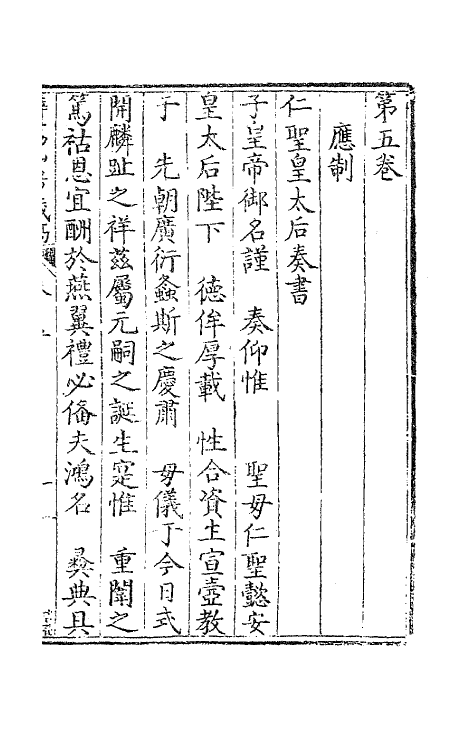 第五卷
應制
仁聖皇太后奏書
子皇帝御名謹　奏仰惟　　聖母仁聖懿安
皇太后陛下　德侔厚載　性合資生宣壼教
于　先朝廣衍螽斯之慶肅　母儀于今日式
開麟趾之祥茲屬元嗣之誕生寔惟　重闈之
篤祜恩宜酬於燕翼禮必偹夫鴻名　彝典具